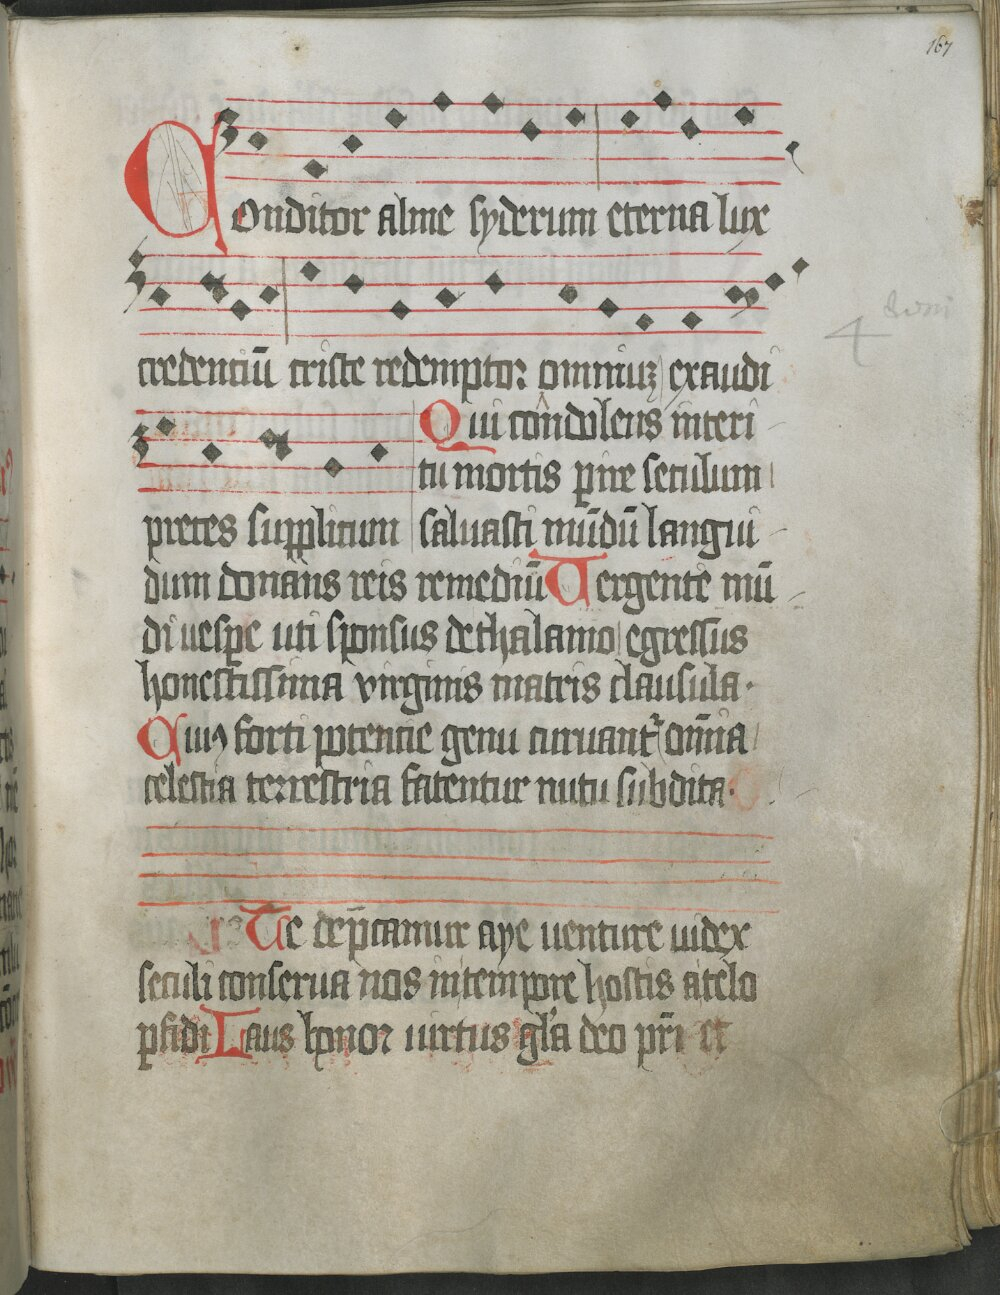 167
Conditor alme syderum eterna lux
credentiū criste redemptor omniuʒ exaudi
Qui condolens interi
tu mortis ꝑire seculum
preces supplicum saluasti mūdū langui
dum donans reis remediū Uergente mū
di uespe uti sponsus de thalamo egressus
honestissima virginis matris clausula.
Cuiꝰ forti potencie genu curuant᷑ om̄ia
celestia terrestria fatentur nutu subdita.
Te dep̄camur aye uenture iudex
seculi conserua nos in tempore hostis a telo
ꝑfidi Laus honor uirtus gl̄a deo pr̄i et